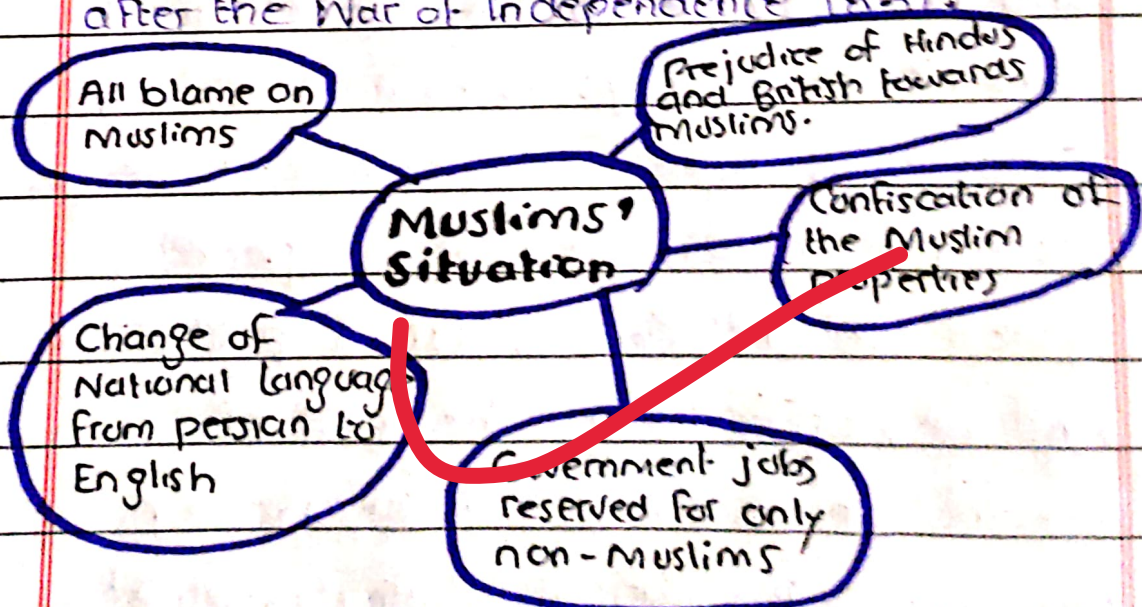 after the War of Independence 1857.
All blame on
Muslims
Prejudice of Hindus
and British towards
Muslims.
Muslims'
Situation
Confiscation of
the Muslim
properties
Change of
National Language
from persian to
English
Government jobs
reserved for only
non-Muslims